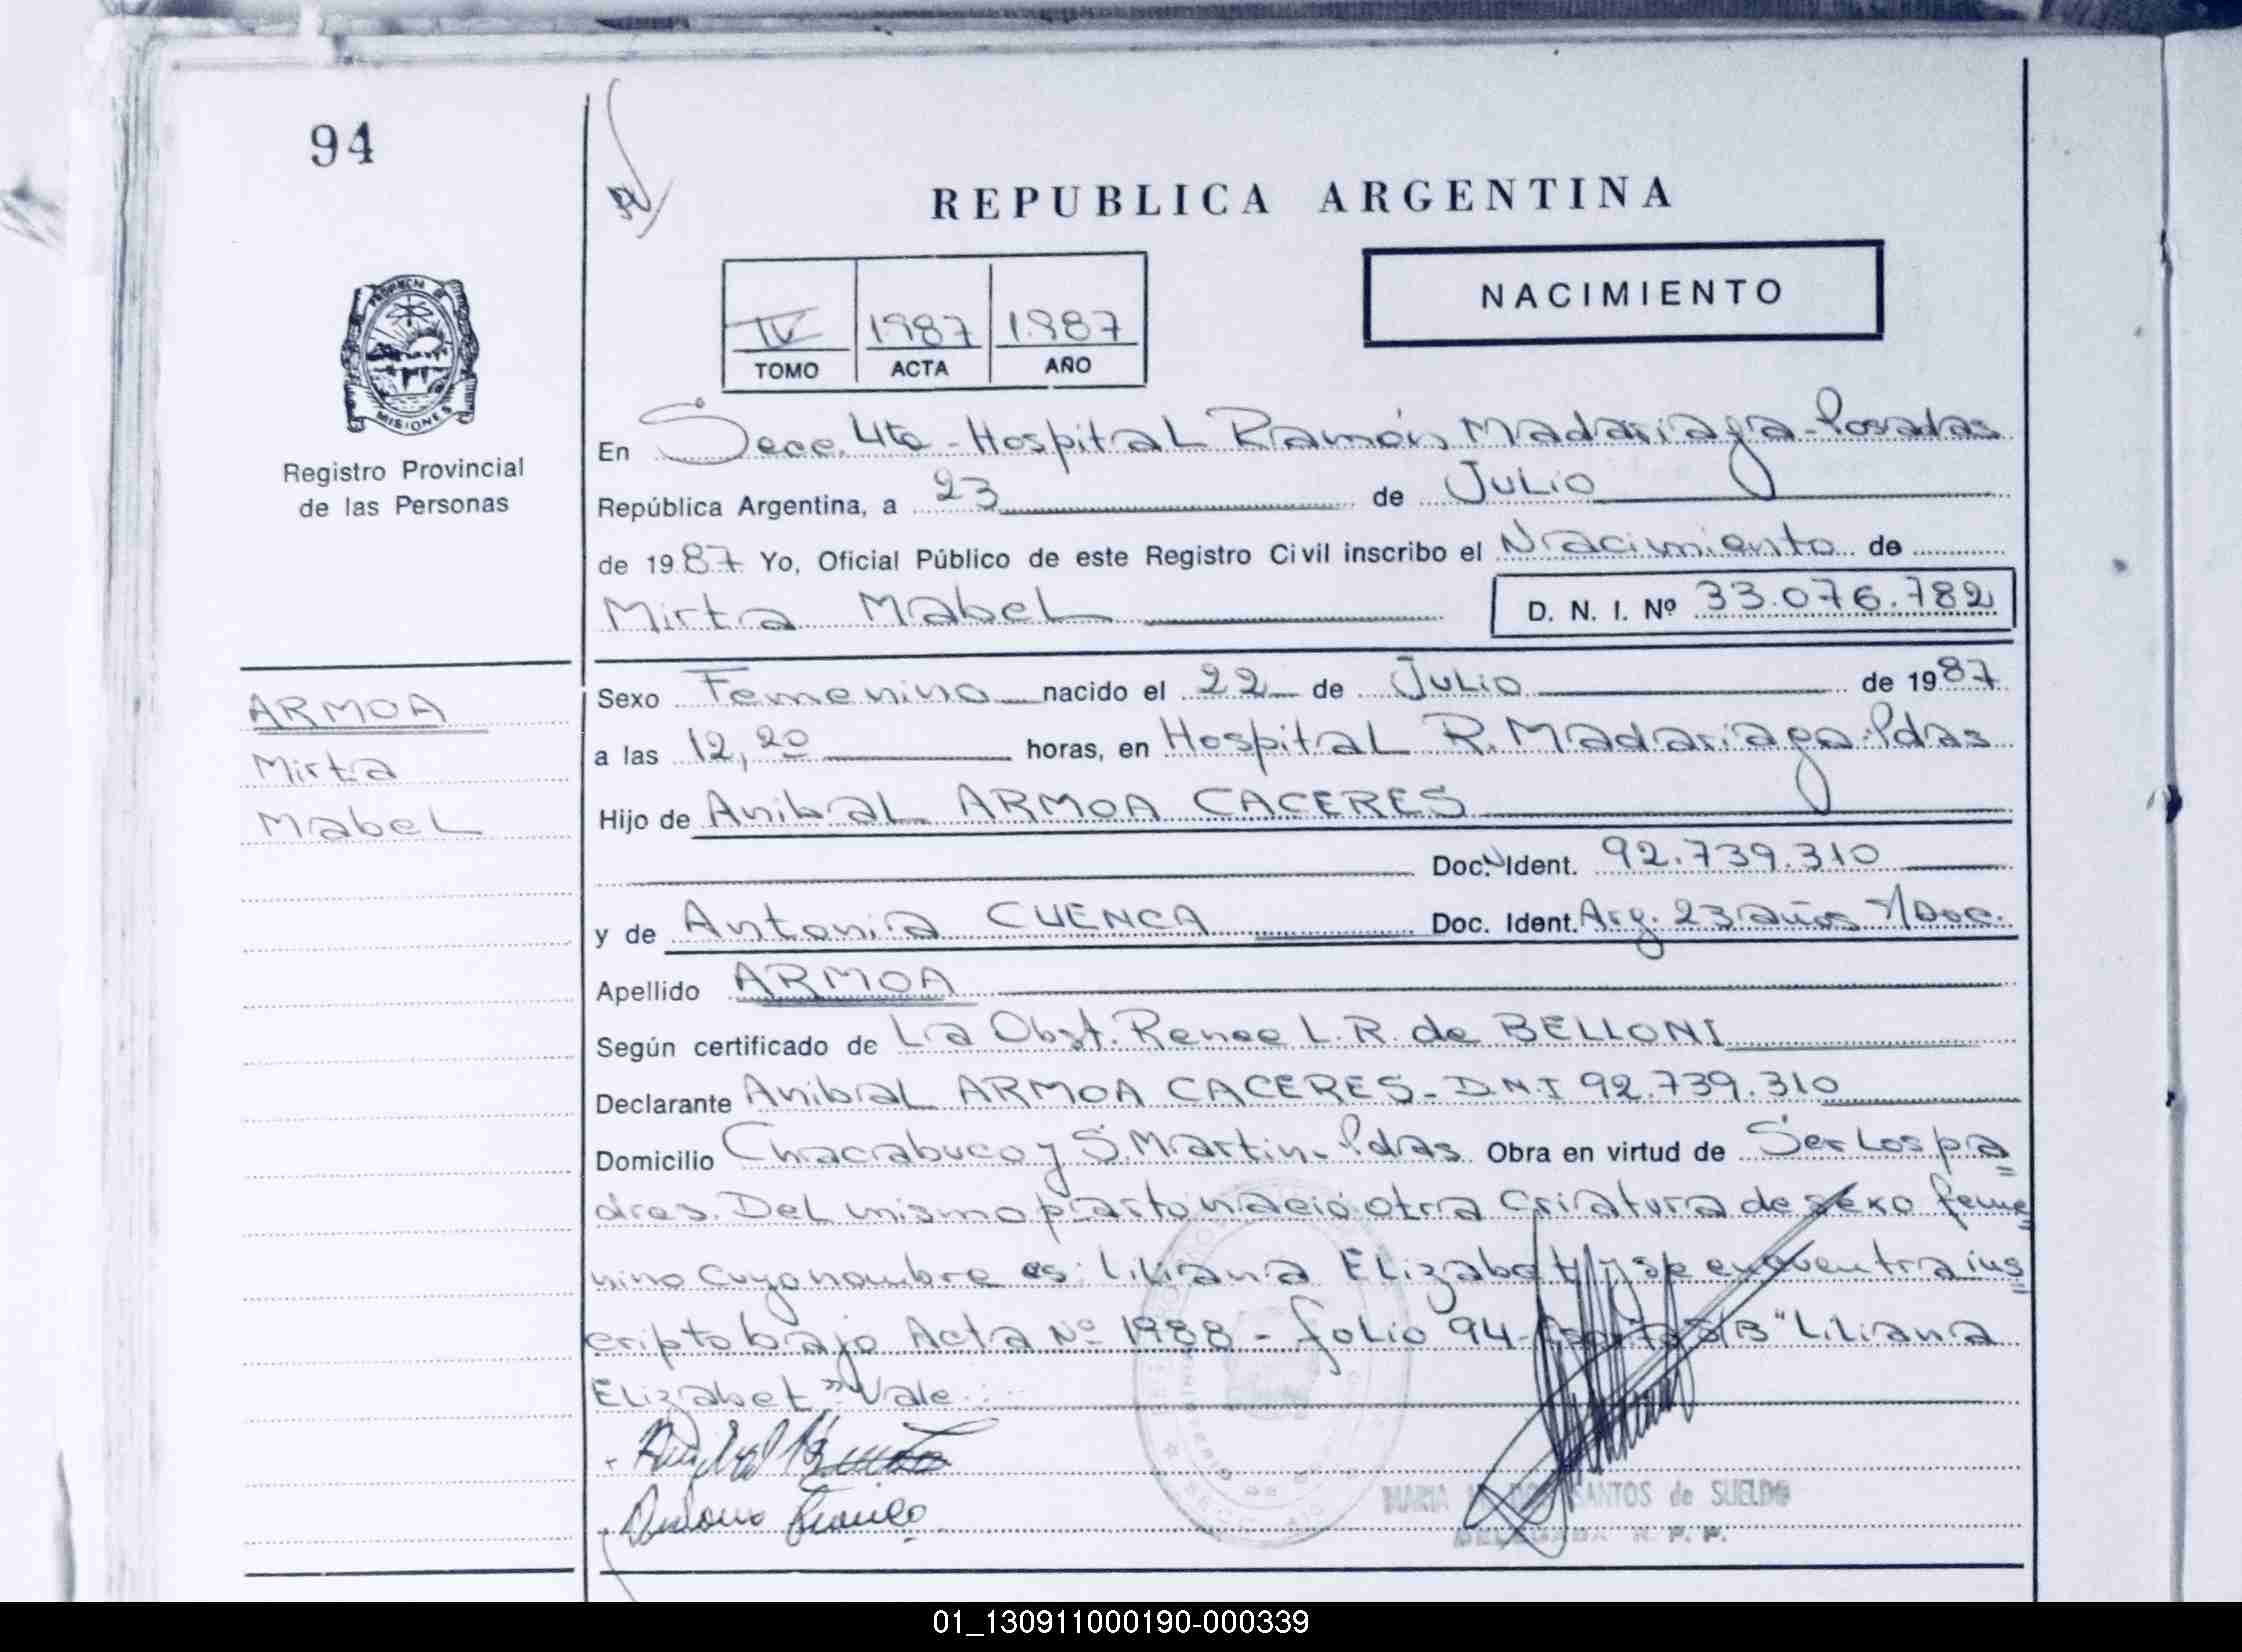 94
REPUBLICA ARGENTINA
NACIMIENTO
IV 1987 1987
TOMO ACTA AÑO
PROVINCIA DE MISIONES
Registro Provincial
de las Personas
En Secc. 4ta - Hospital Ramón Madariaga - Posadas
República Argentina, a 23 de Julio
de 1987 Yo, Oficial Público de este Registro Civil inscribo el Nacimiento de
Mirta Mabel D. N. I. Nº 33.076.782
ARMOA
Mirta
Mabel
Sexo Femenino nacido el 22 de Julio de 1987
a las 12,20 horas, en Hospital R. Madariaga - Pdas
Hijo de Anibal ARMOA CACERES
Doc. Ident. 92.739.310
y de Antonia CUENCA Doc. Ident. Arg. 23 años S/Doc.
Apellido ARMOA
Según certificado de La Obst. Renee L. R. de BELLONI
Declarante Anibal ARMOA CACERES - D.N.I 92.739.310
Domicilio Chacabuco y S. Martin - Pdas Obra en virtud de Ser Los pa
dres. Del mismo parto nació otra criatura de sexo feme
nino cuyo nombre es: Liliana Elizabet y se encuentra ins
cripto bajo Acta Nº 1988 - folio 94 - S/B "Liliana
Elizabet" Vale
MARIA SANTOS de SUELDO
DELEGADA R. P. P.
01_130911000190-000339